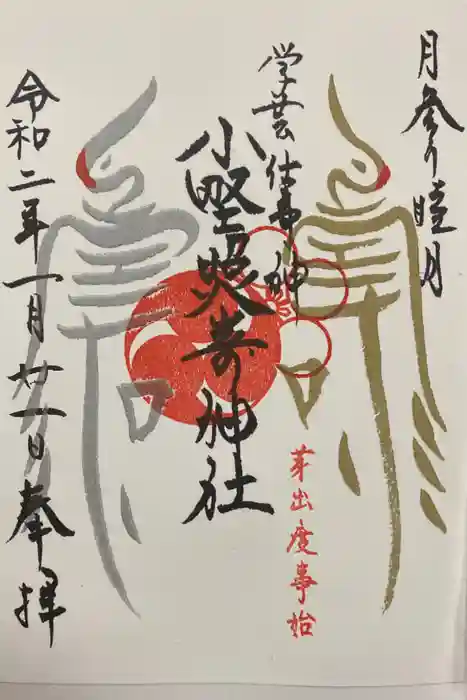 月参り睦月
学芸仕事神
小野照嵜神社
芽出度事始
令和二年一月廿一日奉拝